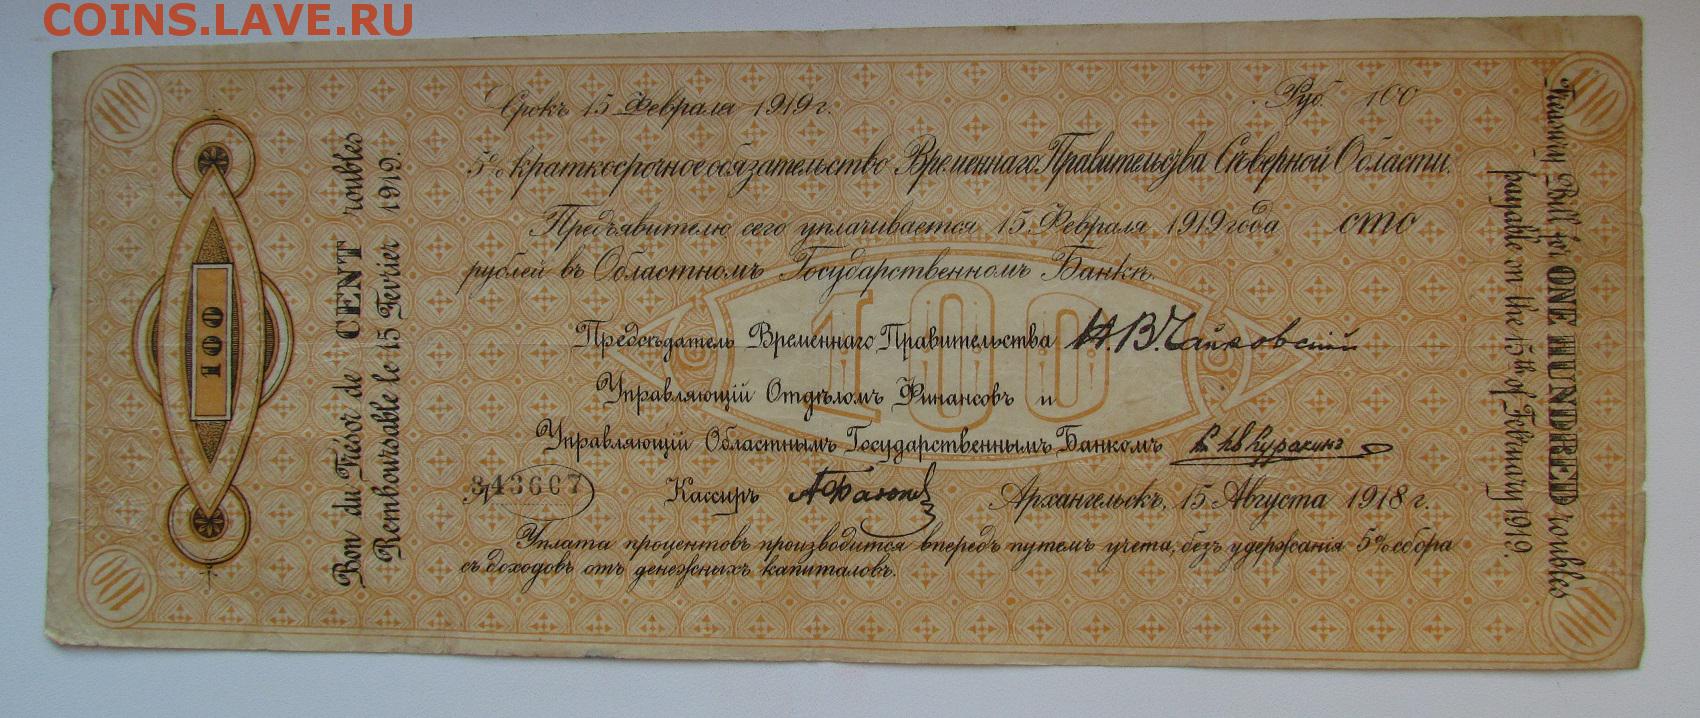 COINS.LAVE.RU
100
Срокъ 15 Февраля 1919 г.
Руб. 100
5% краткосрочное обязательство Временнаго Правительства Сѣверной Области.
Предъявителю сего уплачивается 15 Февраля 1919 года сто
рублей въ Областномъ Государственномъ Банкѣ.
100
Предсѣдатель Временнаго Правительства Н.В. Чайковскій
Управляющій Отдѣломъ Финансовъ и
Управляющій Областнымъ Государственнымъ Банкомъ Кн. Ив Куракинъ
№ 343607
Кассиръ
Архангельскъ, 15 Августа 1918 г.
Уплата процентовъ производится впередъ путемъ учета, безъ удержанія 5% сбора
съ доходовъ отъ денежныхъ капиталовъ.
100
Bon du Trésor de CENT roubles
Remboursable le 15 Fevrier 1919.
Treasury Bill for ONE HUNDRED roubles
payable on the 15th of February 1919.
100
100
100